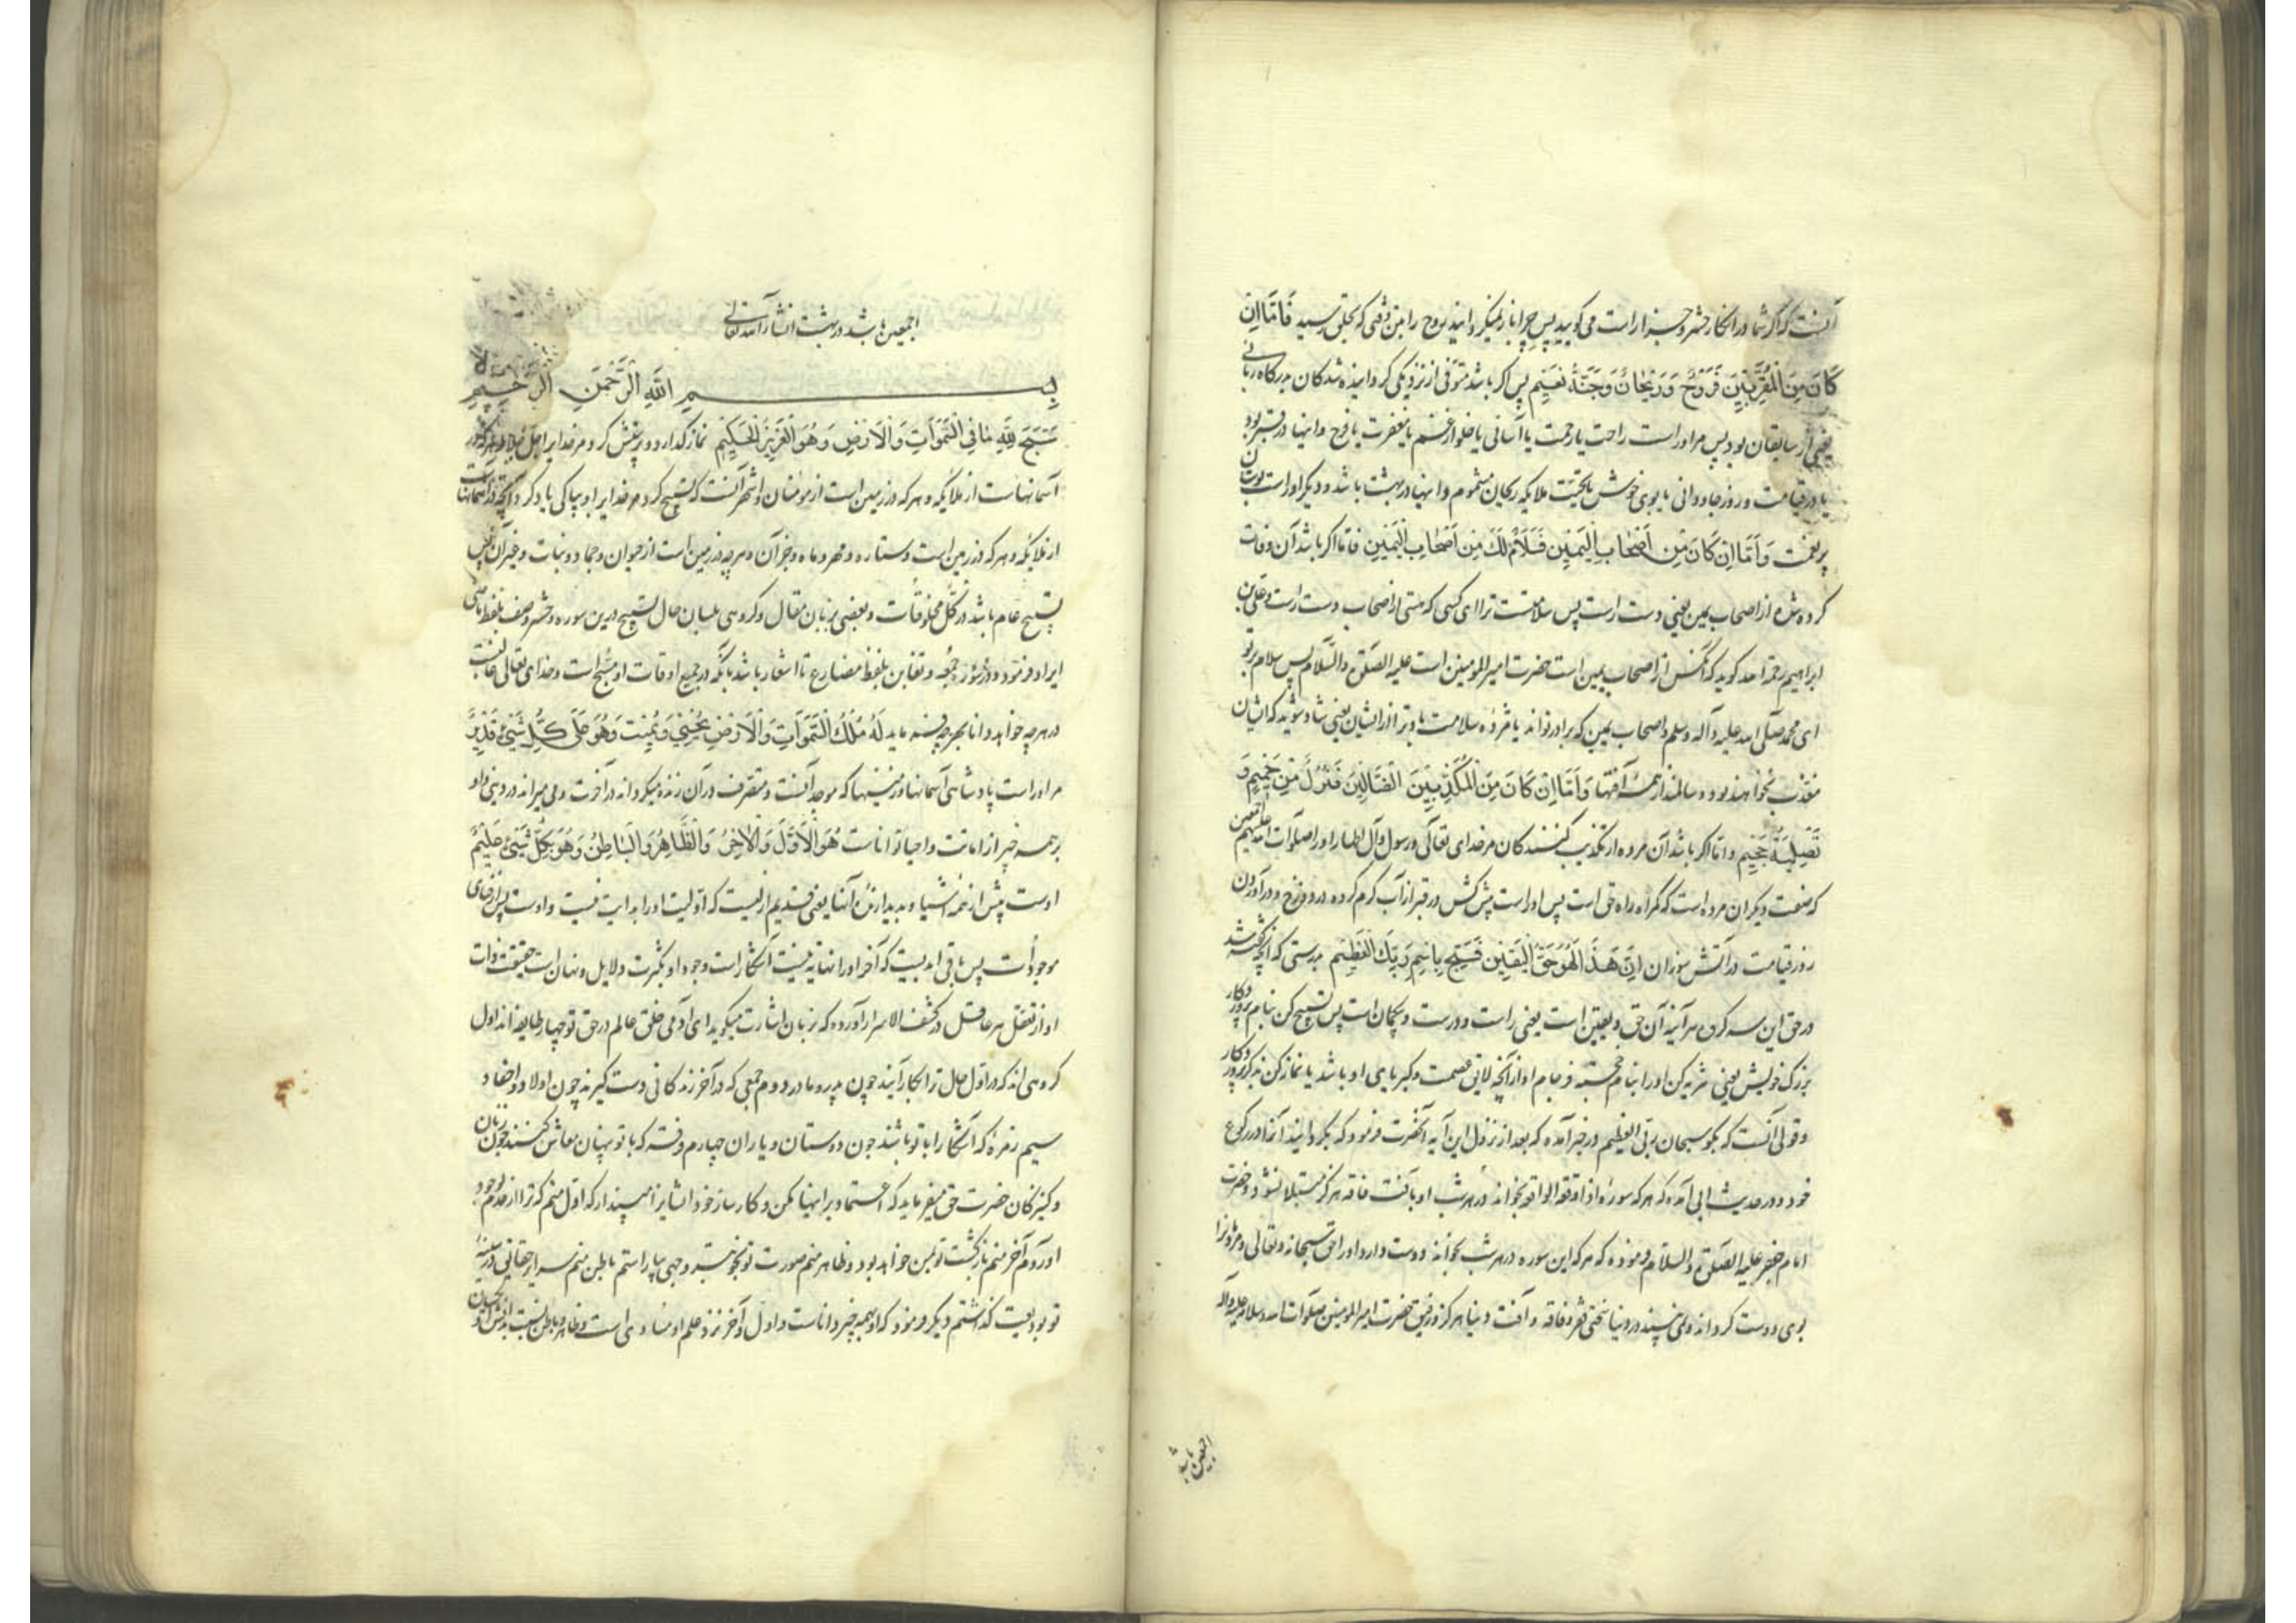 آنست که اگر شما در انکار حشر و جزا راست می گویید پس چرا باز نمیگردانید روح را من وقتی که بحلق رسید فَاَمَّا اِن
کَانَ مِنَ الْمُقَرَّبِینَ فَرَوْحٌ وَرَیْحَانٌ وَجَنَّةُ نَعِیمٍ پس اگر باشد متوفی از نزدیکی گردانیده شدگان بدرگاه ربانی
یعنی از سابقان بود پس مر او راست راحت یا رحمت یا آسانی یا خلو از غم یا مغفرت یا فرح و اینها در قبر بود
یا در قیامت و روز جاودانی یا بوی خوش یا تحیّت ملایکه ریحان مشموم و اینها در بهشت باشد و دیگر او راست بوستان
پر نعمت وَ اَمَّا اِن کَانَ مِن اَصْحَابِ الْیَمِینِ فَسَلَامٌ لَکَ مِن اَصْحَابِ الْیَمِینِ فاما اگر باشد آن وفات
کرده شده از اصحاب یمین یعنی دست راست پس سلامتست ترا ای کسی که هستی از اصحاب دست راست و علی بن
ابراهیم رحمه الله گوید که آنکس از اصحاب یمین است حضرت امیر المومنین است علیه الصلوة والسّلام پس سلام بر تو
ای محمد صلّی الله علیه وآله وسلم از اصحاب یمین که برادر تواند یا مژده سلامت باد ترا از ایشان یعنی شاد شوید که ایشان
معذّب نخواهند بود و سالمند از همه آفتها وَ اَمَّا اِن کَانَ مِنَ الْمُکَذِّبِینَ الضَّالِّینَ فَنُزُلٌ مِن حَمِیمٍ وَ
تَصْلِیَةُ جَحِیمٍ و امّا اگر باشد آن مرده از تکذیب کنندگان مر خدای تعالی و رسول و آل اطهار او را صلوات الله علیهم اجمعین
که صفت دیگر آن مرده است که گمراه راه حق است پس او راست پیش کش در قبر از آب گرم کرده در دوزخ و در آوردن
روز قیامت در آتش سوزان اِنَّ هَذَا لَهُوَ حَقُّ الْیَقِینِ فَسَبِّحْ بِاسْمِ رَبِّکَ الْعَظِیمِ بدرستی که آنچه گفته شد
در حق این سه گروه هر آینه آن حق و یقین است یعنی راست و درست و بیگمان است پس تسبیح کن بنام پروردگار
بزرگ خویش یعنی تنزیه کن او را بنام خجسته فرجام او از آنچه لایق عصمت و کبریای او باشد یا نماز کن بذکر پروردگار
و قولی آنست که بگو سبحان ربّی العظیم در خبر آمده که بعد از نزول این آیه آنحضرت فرمود که بگردانید آنرا در رکوع
خود و در حدیث ابی آمده که هر که سورهٔ اذا وقعة الواقعه بخواند در هر شب او بآفت فاقه هرگز مبتلا نشود و حضرت
امام جعفر علیه الصلوة والسّلام فرموده که هر که این سوره در هر شب بخواند دوست دارد او را حق سبحانه و تعالی و مردمانرا
بوی دوست گرداند و نبیند در دنیا سختی فقر و فاقه و آفت دنیا هرگز و رفیق حضرت امیر المومنین صلوات الله وسلامه علیه وآله
اجمعین باشد
اجمعین باشد در بهشت انشاء الله تعالی
بِسْمِ اللَّهِ الرَّحْمَنِ الرَّحِیمِ
سَبَّحَ لِلَّهِ مَا فِی السَّمَوَاتِ وَالْاَرْضِ وَهُوَ الْعَزِیزُ الْحَکِیمُ نماز گذارد و پرستش کرد مر خدایرا جل جلاله هر که در
آسمانهاست از ملایکه و هر که در زمین است از مومنان و اشهر آنست که تسبیح کرد مر خدایرا و بپاکی یاد کرد آنچه در آسمانهاست
از ملایکه و هر که در زمین است و ستاره و مهر و ماه و جز آن و هر چه در زمین است از حیوان و جماد و نبات و غیر آن پس
تسبیح عام باشد در کُلّ مخلوقات و بعضی بزبان مقال و گروهی بلسان حال تسبیح درین سوره و حشر و صف بلفظ ماضی
ایراد فرمود و در سورهٔ جمعه و تغابن بلفظ مضارع تا اشعار باشد بآنکه در جمیع اوقات او مسبَّح است و خدای تعالی غالبست
در هر چه خواهد و دانا بهر چه فرماید لَهُ مُلْکُ السَّمَوَاتِ وَالْاَرْضِ یُحْیِی وَیُمِیتُ وَهُوَ عَلَی کُلِّ شَیْءٍ قَدِیرٌ
مر او راست پادشاهی آسمانها و زمینها که موجد آنست و متصرف در آن زنده میگرداند در آخرت و می میراند در دنیی و او
بر همه چیز از اماتت و احیا تواناست هُوَ الْاَوَّلُ وَالْاَخِرُ وَالظَّاهِرُ وَالْبَاطِنُ وَهُوَ بِکُلِّ شَیْءٍ عَلِیمٌ
اوست پیش از همه اشیا و پدید آرندهٔ آنها یعنی قدیم ازلیست که اوّلیت او را بدایت نیست و اوست پس از فنای
موجودات پس باقی ابدیست که آخر او را نهایه نیست آشکار است وجود او بکثرت دلایل و نهان است حقیقت ذات
او از تعقّل هر عاقل در کشف الاسرار آورده که زبان اشارت میگوید ای آدمی خلق عالم در حق تو چهار طایفه اند اول
گروهی اند که در اوّل حال ترا بکار آیند چون پدر و مادر دووم جمعی که در آخر زندگانی دست گیرند چون اولاد و احفاد و
سیم زمرهٔ که آشکارا با تو باشند چون دوستان و یاران چهارم فرقه که با تو پنهان معاش کنند چون زنان
و کنیزکان حضرت حق میفرماید که اعتماد بر اینها مکن و کارساز خود ایشانرا مپندار که اول منم که ترا از عدم بوجود
آوردم آخر منم بازگشت تو بمن خواهد بود و ظاهر منم صورت تو بخوبتر وجهی بیاراستم باطن منم اسرار حقانی در سینهٔ
تو بودیعت گذاشتم دیگر فرمود که او بهمه چیز داناست و اول و آخر نزد علم او مساویست و ظاهر و باطن نسبت بدانش او یکسان